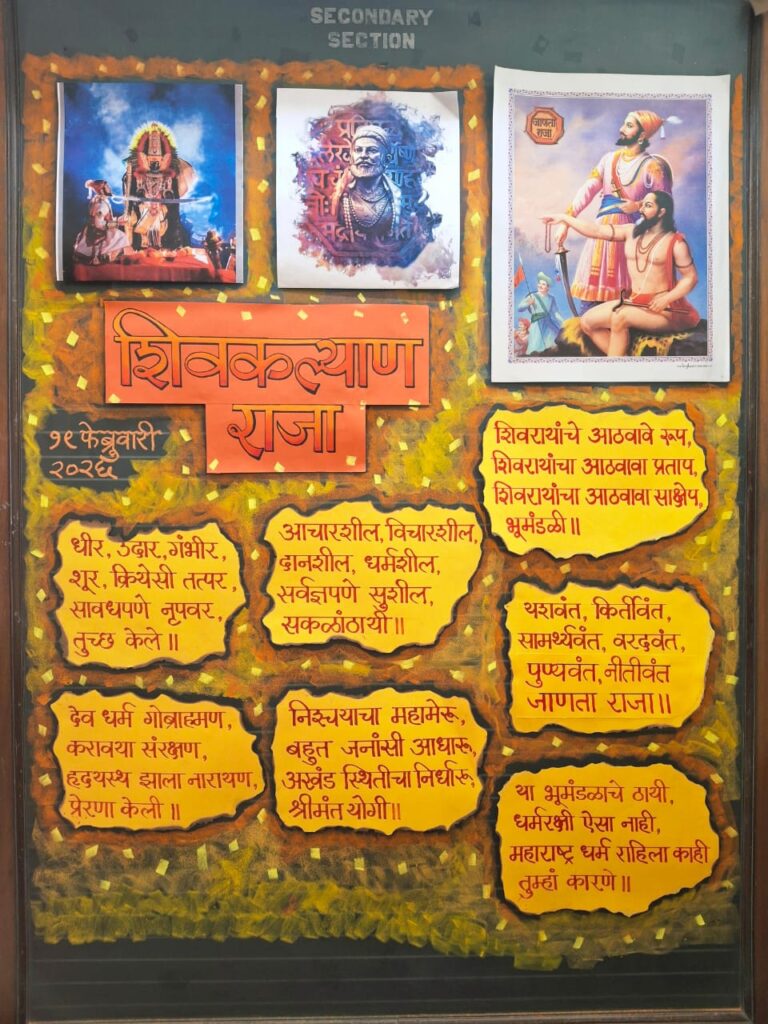 SECONDARY
SECTION
जाणता
राजा
शिवकल्याण
राजा
१९ फेब्रुवारी
२०२६
शिवरायांचे आठवावे रूप,
शिवरायांचा आठवावा प्रताप,
शिवरायांचा आठवावा साक्षेप,
भूमंडळी॥
धीर, उदार, गंभीर,
शूर, क्रियेसी तत्पर,
सावधपणे नृपवर,
तुच्छ केले॥
आचारशील, विचारशील,
दानशील, धर्मशील,
सर्वज्ञपणे सुशील,
सकळांठायी॥
यशवंत, किर्तीवंत,
सामर्थ्यवंत, वरदवंत,
पुण्यवंत, नीतीवंत
जाणता राजा॥
देव धर्म गोब्राह्मण,
करावया संरक्षण,
हृदयस्थ झाला नारायण,
प्रेरणा केली॥
निश्चयाचा महामेरू,
बहुत जनांसी आधारू,
अखंड स्थितीचा निर्धारू,
श्रीमंत योगी॥
या भूमंडळाचे ठायी,
धर्मरक्षी ऐसा नाही,
महाराष्ट्र धर्म राहिला काही
तुम्हां कारणे॥